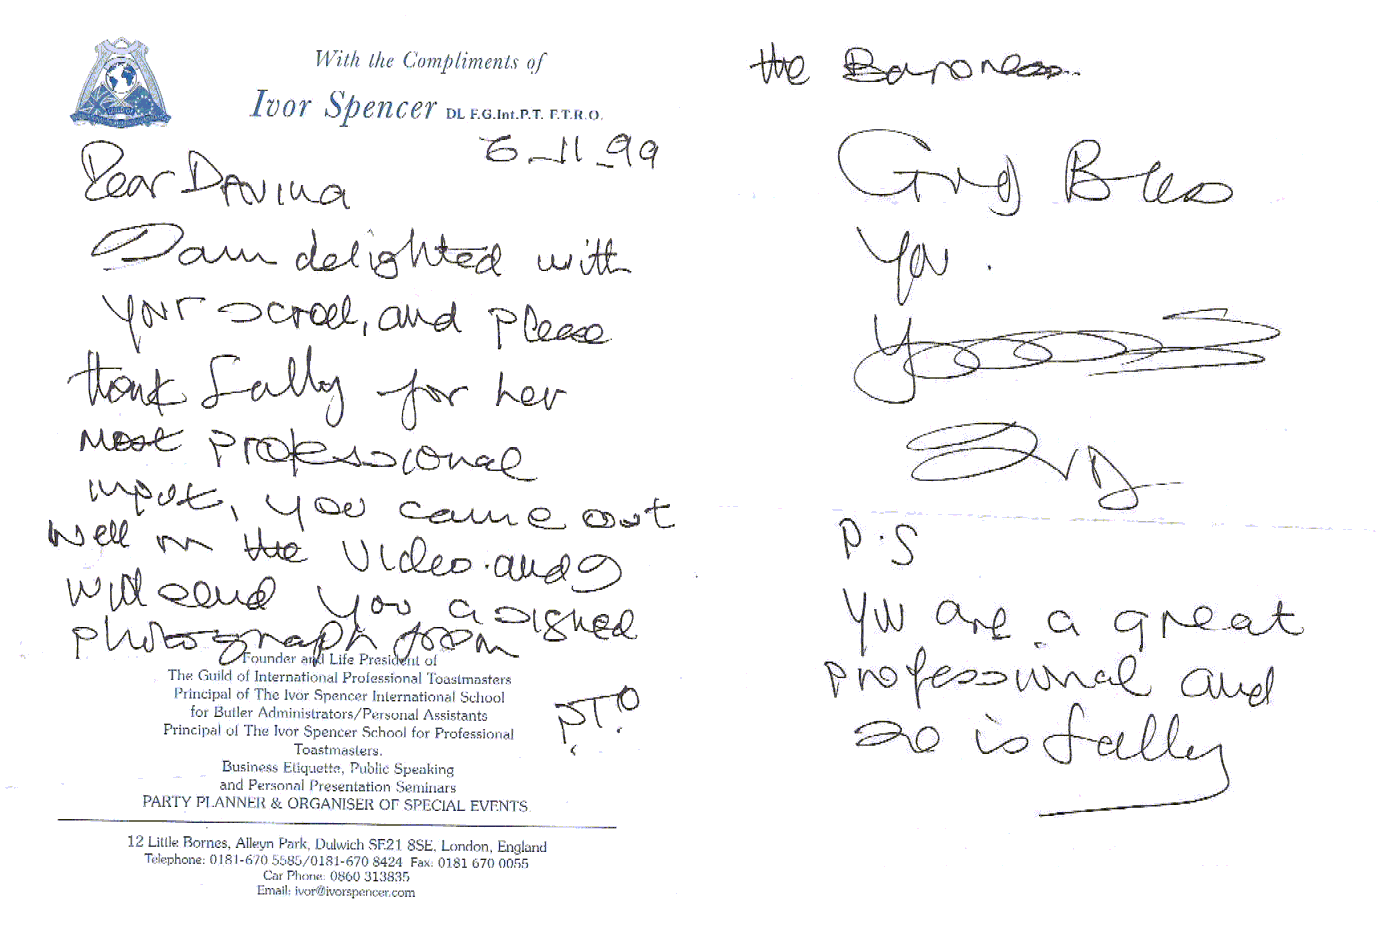 With the Compliments of
Ivor Spencer DL F.G.Int.P.T. F.T.R.O.
6_11_99
Dear DAVINA
I am delighted with
your scroll, and please
thank Sally for her
most professional
input, you came out
well in the video. and I
will send you a signed
photograph from
P.T.O
Founder and Life President of
The Guild of International Professional Toastmasters
Principal of The Ivor Spencer International School
for Butler Administrators/Personal Assistants
Principal of The Ivor Spencer School for Professional
Toastmasters.
Business Etiquette, Public Speaking
and Personal Presentation Seminars
PARTY PLANNER & ORGANISER OF SPECIAL EVENTS.
12 Little Bornes, Alleyn Park, Dulwich SE21 8SE, London, England
Telephone: 0181-670 5585/0181-670 8424 Fax: 0181 670 0055
Car Phone: 0860 313835
Email: ivor@ivorspencer.com
the Baroness.
God Bless
You.
P.S
You are a great
professional and
so is Sally